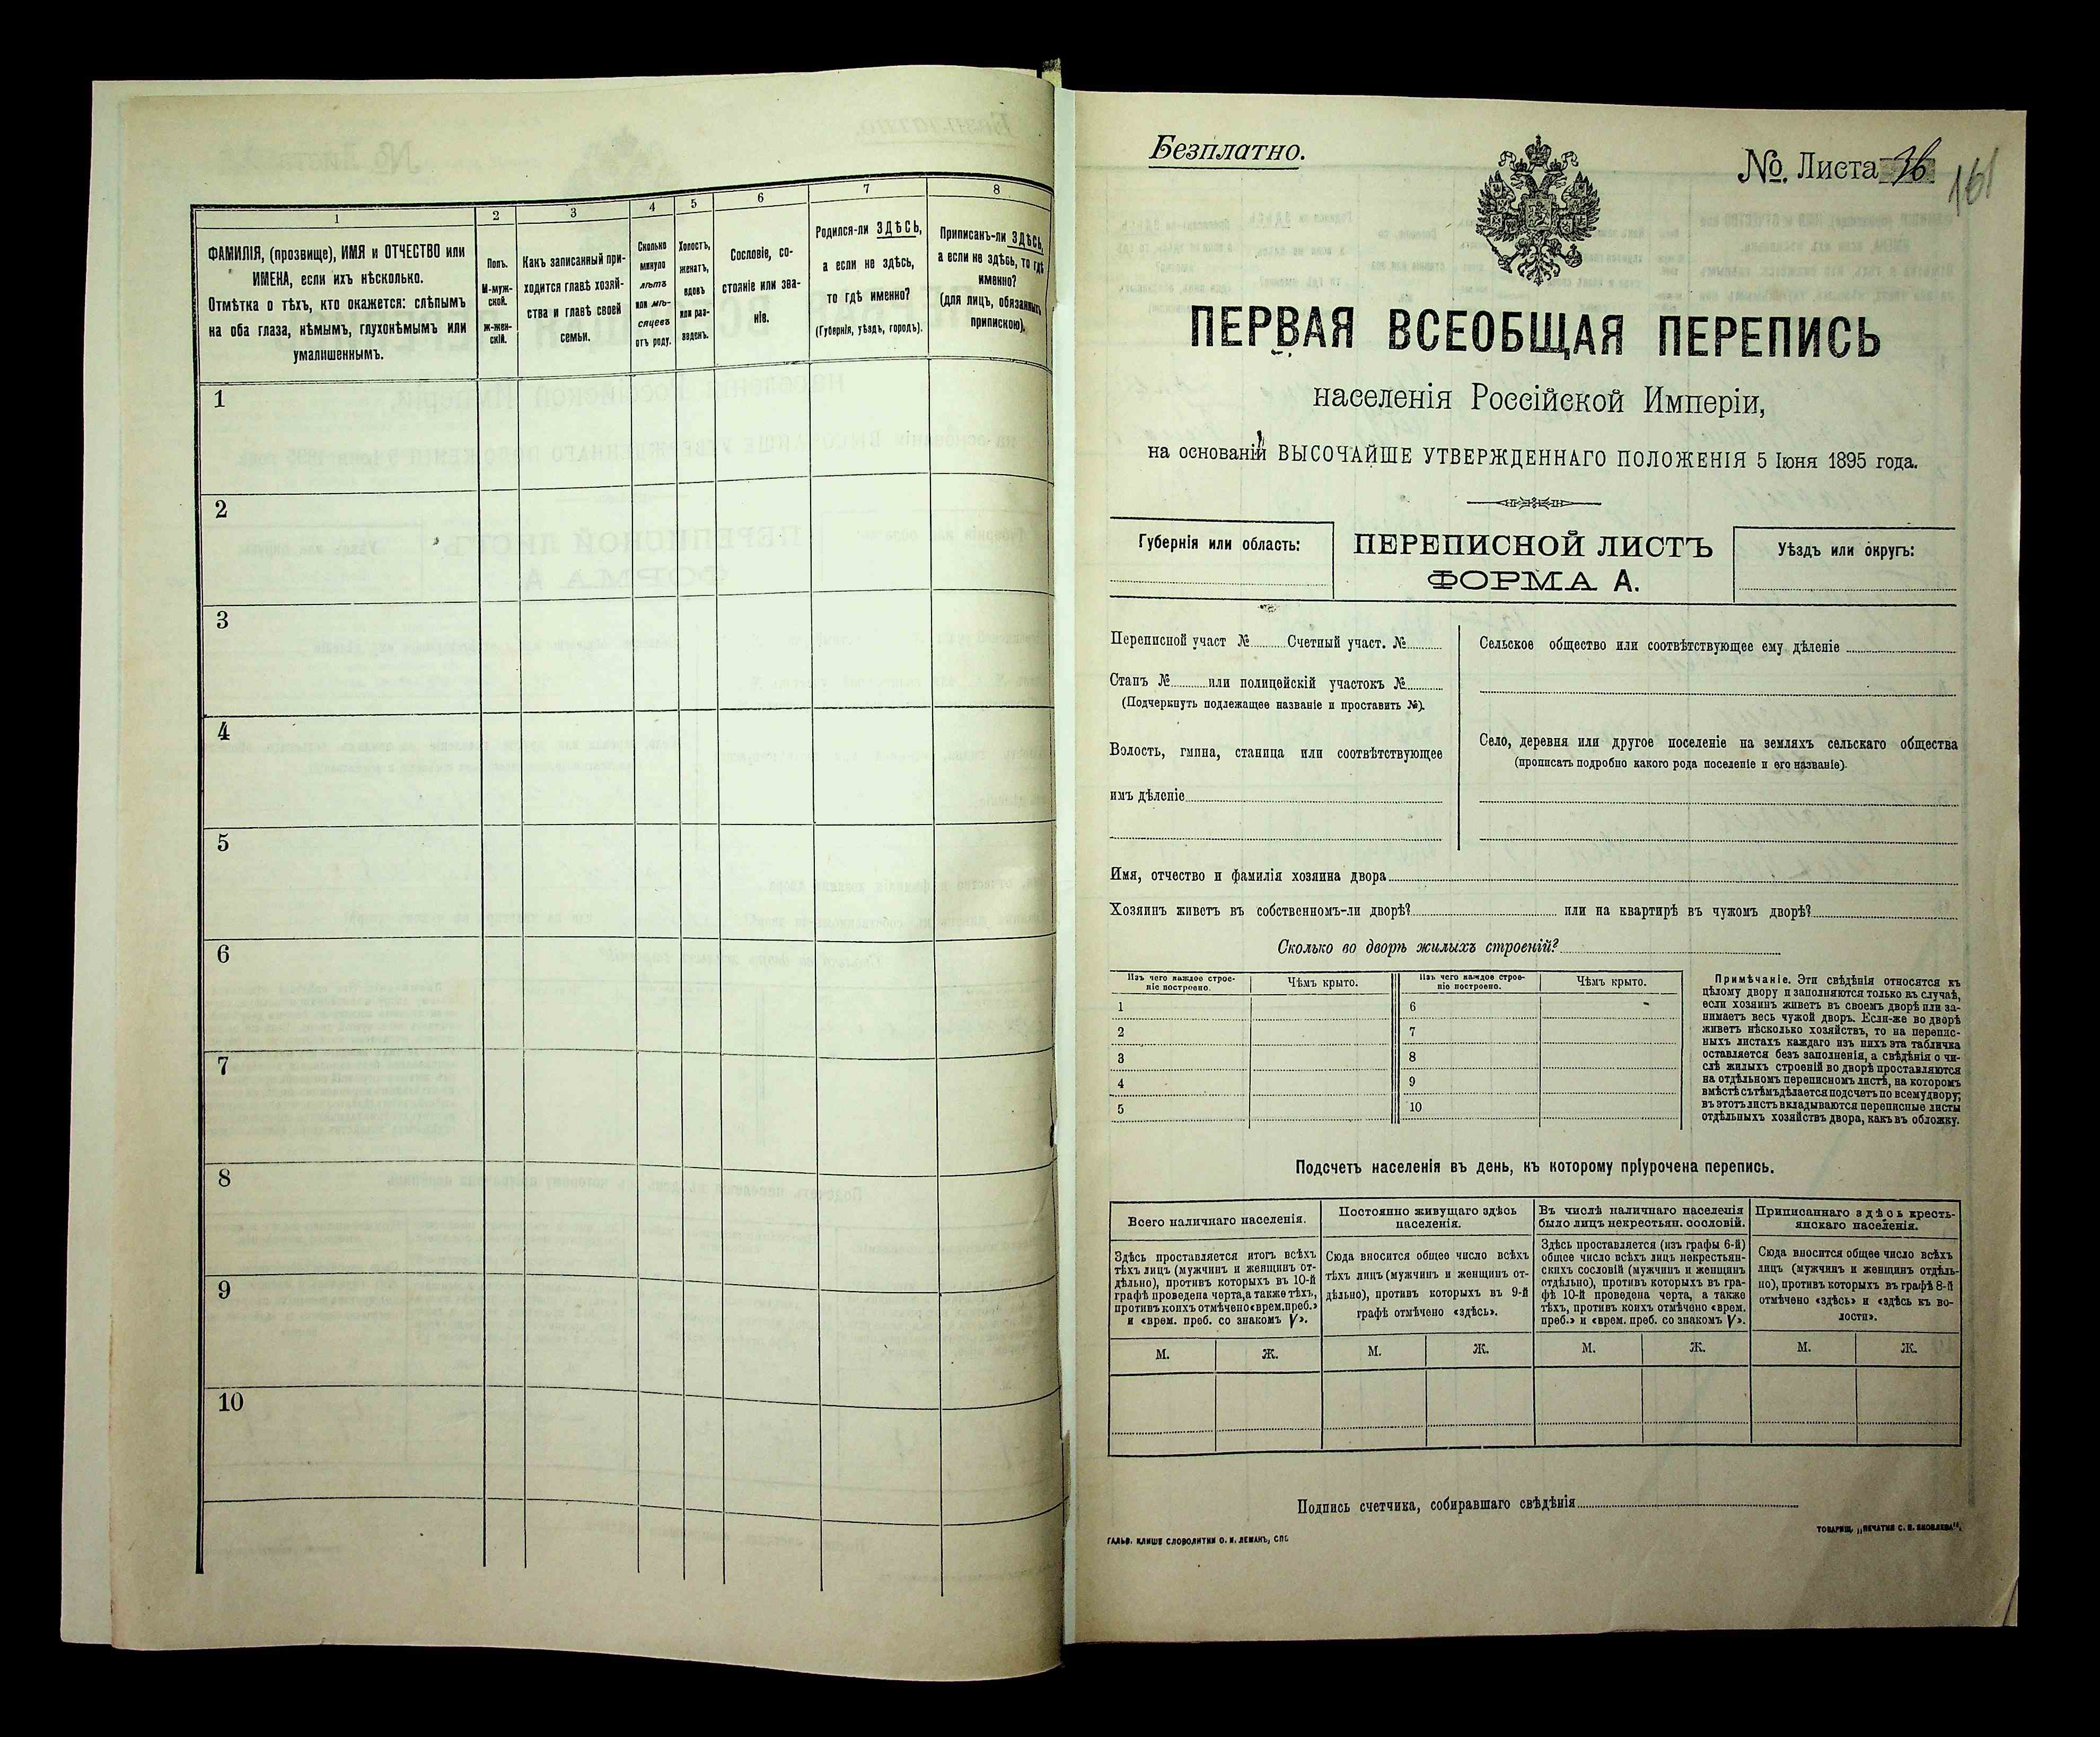 1
2
3
4
5
6
7
8
ФАМИЛІЯ, (прозвище), ИМЯ и ОТЧЕСТВО или
ИМЕНА, если ихъ нѣсколько.
Отмѣтка о тѣхъ, кто окажется: слѣпымъ
на оба глаза, нѣмымъ, глухонѣмымъ или
умалишеннымъ.
Полъ.
М-муж-
ской.
Ж-жен-
скій.
Какъ записанный при-
ходится главѣ хозяй-
ства и главѣ своей
семьи.
Сколько
минуло
лѣтъ
или мѣ-
сяцевъ
отъ роду.
Холостъ,
женатъ,
вдовъ
или раз-
веденъ.
Сословіе, со-
стояніе или зва-
ніе.
Родился-ли ЗДѢСЬ,
а если не здѣсь,
то гдѣ именно?
(Губернія, уѣздъ, городъ).
Приписанъ-ли ЗДѢСЬ,
а если не здѣсь, то гдѣ
именно?
(для лицъ, обязанныхъ
припискою).
1
2
3
4
5
6
7
8
9
10
Безплатно.
№ Листа 36
161
ПЕРВАЯ ВСЕОБЩАЯ ПЕРЕПИСЬ
населенія Россійской Имперіи,
на основаніи ВЫСОЧАЙШЕ УТВЕРЖДЕННАГО ПОЛОЖЕНІЯ 5 Іюня 1895 года.
Губернія или область:
ПЕРЕПИСНОЙ ЛИСТЪ
ФОРМА А.
Уѣздъ или округъ:
Переписной участ № Счетный участ. №
Станъ № или полицейскій участокъ №
(Подчеркнуть подлежащее названіе и проставить №).
Волость, гмина, станица или соотвѣтствующее
имъ дѣленіе
Сельское общество или соотвѣтствующее ему дѣленіе
Село, деревня или другое поселеніе на земляхъ сельскаго общества
(прописать подробно какого рода поселеніе и его названіе).
Имя, отчество и фамилія хозяина двора
Хозяинъ живетъ въ собственномъ-ли дворѣ? или на квартирѣ въ чужомъ дворѣ?
Сколько во дворѣ жилыхъ строеній?
Изъ чего каждое строе-
ніе построено.
Чѣмъ крыто.
Изъ чего каждое строе-
ніе построено.
Чѣмъ крыто.
1
2
3
4
5
6
7
8
9
10
Примѣчаніе. Эти свѣдѣнія относятся къ
цѣлому двору и заполняются только въ случаѣ,
если хозяинъ живетъ въ своемъ дворѣ или за-
нимаетъ весь чужой дворъ. Если-же во дворѣ
живетъ нѣсколько хозяйствъ, то на перепис-
ныхъ листахъ каждаго изъ нихъ эта табличка
оставляется безъ заполненія, а свѣдѣнія о чи-
слѣ жилыхъ строеній во дворѣ проставляются
на отдѣльномъ переписномъ листѣ, на которомъ
вмѣстѣ съ тѣмъ дѣлается подсчетъ по всему двору;
въ этотъ листъ вкладываются переписные листы
отдѣльныхъ хозяйствъ двора, какъ въ обложку.
Подсчетъ населенія въ день, къ которому пріурочена перепись.
Всего наличнаго населенія.
Постоянно живущаго здѣсь
населенія.
Въ числѣ наличнаго населенія
было лицъ некрестьян. сословій.
Приписаннаго здѣсь кресть-
янскаго населенія.
Здѣсь проставляется итогъ всѣхъ
тѣхъ лицъ (мужчинъ и женщинъ от-
дѣльно), противъ которыхъ въ 10-й
графѣ проведена черта, а также тѣхъ,
противъ коихъ отмѣчено «врем. преб.»
и «врем. преб. со знакомъ V».
Сюда вносится общее число всѣхъ
тѣхъ лицъ (мужчинъ и женщинъ от-
дѣльно), противъ которыхъ въ 9-й
графѣ отмѣчено «здѣсь».
Здѣсь проставляется (изъ графы 6-й)
общее число всѣхъ лицъ некрестьян-
скихъ сословій (мужчинъ и женщинъ
отдѣльно), противъ которыхъ въ гра-
фѣ 10-й проведена черта, а также
тѣхъ, противъ коихъ отмѣчено «врем.
преб.» и «врем. преб. со знакомъ V».
Сюда вносится общее число всѣхъ
лицъ (мужчинъ и женщинъ отдѣль-
но), противъ которыхъ въ графѣ 8-й
отмѣчено «здѣсь» и «здѣсь къ во-
лости».
М. Ж. М. Ж. М. Ж. М. Ж.
Подпись счетчика, собиравшаго свѣдѣнія
ГАЛЬВ. КЛИШЕ СЛОВОЛИТНИ О. И. ЛЕМАНЪ, СПБ.
ТОВАРИЩ. „ПЕЧАТНЯ С. П. ЯКОВЛЕВА".